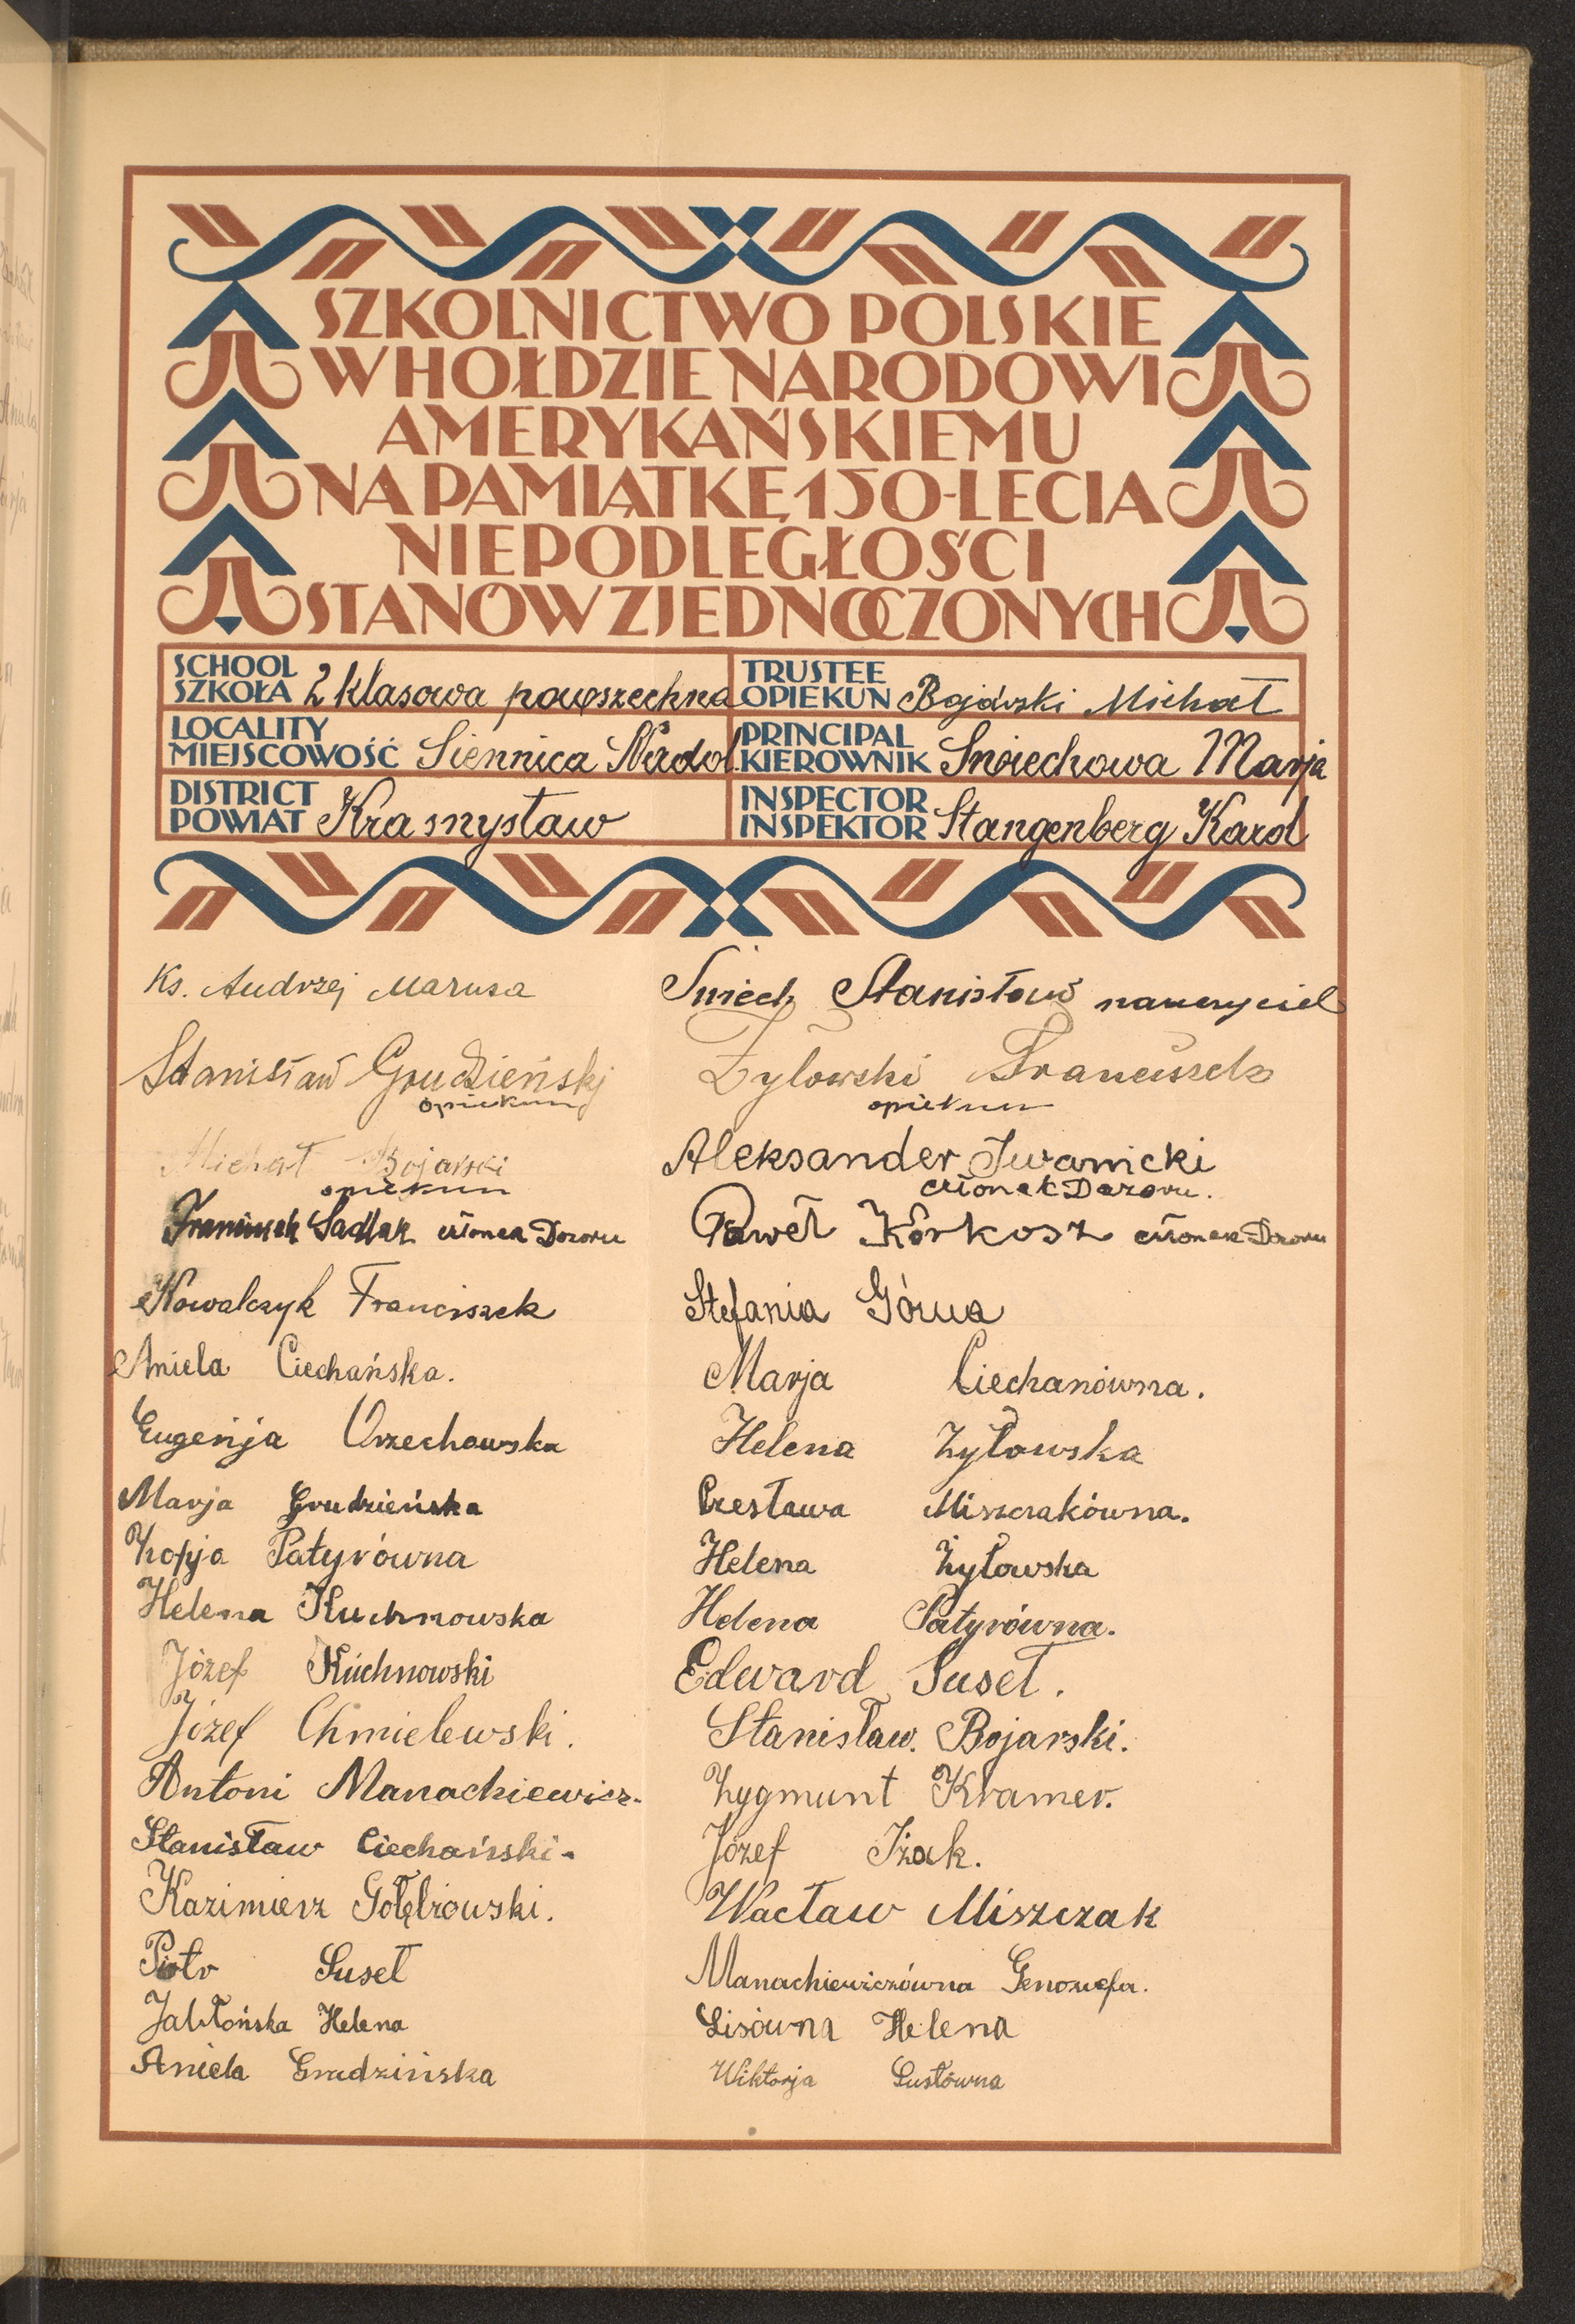 SZKOLNICTWO POLSKIE
W HOŁDZIE NARODOWI
AMERYKAŃSKIEMU
NA PAMIĄTKĘ 150-LECIA
NIEPODLEGŁOŚCI
STANÓW ZJEDNOCZONYCH
SCHOOL
SZKOŁA 2 klasowa powszechna
TRUSTEE
OPIEKUN Bojarski Michał
LOCALITY
MIEJSCOWOŚĆ Siennica Nadol.
PRINCIPAL
KIEROWNIK Śmiechowa Marja
DISTRICT
POWIAT Krasnystaw
INSPECTOR
INSPEKTOR Stangenberg Karol
Ks. Andrzej Marusa
Śmiech Stanisław nauczyciel
Stanisław Grudzieński
opiekun
Żyłowski Franciszek
opiekun
Michał Bojarski
opiekun
Aleksander Iwanicki
członek Dozoru.
Franciszek Sadlak członek Dozoru
Paweł Korkosz członek Dozoru
Kowalczyk Franciszek
Stefania Górna
Aniela Ciechańska.
Marja Ciechanówna.
Eugenja Orzechowska
Helena Żyłowska
Marja Grudzieńska
Czesława Miszczakówna.
Zofja Patyrówna
Helena Żyłowska
Helena Kuchnowska
Helena Patyrówna.
Józef Kuchnowski
Edward Suseł.
Józef Chmielewski.
Stanisław. Bojarski.
Antoni Manachiewicz.
Zygmunt Kramer.
Stanisław Ciechański.
Józef Iżak.
Kazimierz Gołębiowski.
Wacław Miszczak
Piotr Suseł
Manachiewiczówna Genowefa.
Jabłońska Helena
Lisówna Helena
Aniela Grudzińska
Wiktorja Susłówna